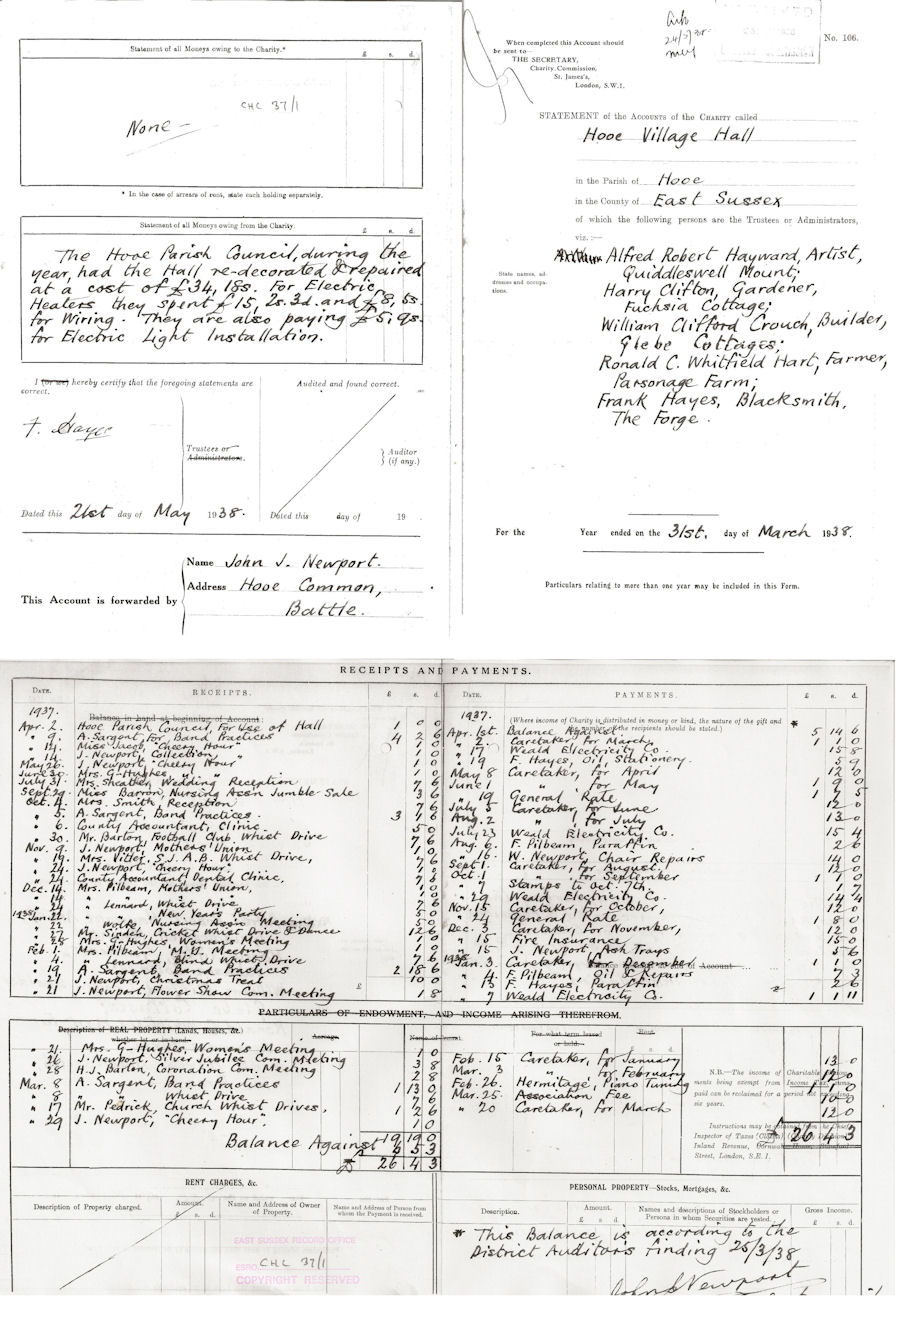 Statement of all Moneys owing to the Charity.*
£ s. d.
CHC 37/1
None —
* In the case of arrears of rent, state each holding separately.
Statement of all Moneys owing from the Charity.
£ s. d.
The Hooe Parish Council, during the
year, had the Hall re-decorated & repaired
at a cost of £34, 18s. For Electric
Heaters they spent £15, 2s. 3d. and £8, 5s.
for Wiring. They are also paying £5, 9s.
for Electric Light Installation.
I (or we) hereby certify that the foregoing statements are
correct.
F. Hayes
Trustees or
Administrators.
Audited and found correct.
Auditor
(if any.)
Dated this 21st day of May 1938.
Dated this day of 19
This Account is forwarded by
Name John J. Newport.
Address Hooe Common,
Battle.
No. 106.
When completed this Account should
be sent to—
THE SECRETARY,
Charity Commission,
St. James's,
London, S.W.1.
STATEMENT of the ACCOUNTS of the CHARITY called
Hooe Village Hall
in the Parish of Hooe
in the County of East Sussex
of which the following persons are the Trustees or Administrators,
viz. :—
State names, ad-
dresses and occupa-
tions.
Alfred Robert Hayward, Artist,
Quiddleswell Mount;
Harry Clifton, Gardener,
Fuchsia Cottage;
William Clifford Crouch, Builder,
Glebe Cottages;
Ronald C. Whitfield Hart, Farmer,
Parsonage Farm;
Frank Hayes, Blacksmith,
The Forge.
For the Year ended on the 31st. day of March 1938.
Particulars relating to more than one year may be included in this Form.
RECEIPTS AND PAYMENTS.
DATE. RECEIPTS. £ s. d.
1937.
Balance in hand at beginning of Account:
Apr. 2. Hooe Parish Council, For Use of Hall 1 0 0
" 9. A. Sargent, for Band Practices 4 2 6
" 14. Miss Jacob, "Cheery Hour" 1 0
" 14. J. Newport, Collection, " 1 0
May 26. J. Newport, "Cheery Hour" 1 0
June 30. Mrs. G-Hughes, " " 1 0
July 31. Mrs. Sheather, Wedding Reception 7 6
Sept. 29. Miss Barron, Nursing Assn Jumble Sale 3 6
Oct. 4. Mrs. Smith, Reception 7 6
" 5. A. Sargent, Band Practices. 3
" 6. County Accountant, Clinic. 5 0
" 30. Mr. Barton, Football Club Whist Drive 7 6
Nov. 9. J. Newport, Mothers' Union 1 0
" 19. Mrs. Vitler, S.J.A.B. Whist Drive, 7 6
" 24. J. Newport, "Cheery Hour" 1
" 24. County Accountant, Dental Clinic, 7 6
Dec. 14. Mrs. Pilbeam, Mothers' Union, 1 0
" 14
" 24 " Lennard, Whist Drive 7 6
" " New Year's Party 5 0
1938 Jan. 22. " Wolfe, Nursing Assn Meeting 5 0
" 27 Mr. Sinden, Cricket Whist Drive & Dance 12 6
" 28 Mrs. G-Hughes, Women's Meeting 1 0
Feb. 1. Mrs. Pilbeam, M.U. Meeting 1 0
" 4. " Lennard, Blind Whist Drive 7 6
" 19 A. Sargent, Band Practices 2 18 6
" 21 J. Newport, Christmas Treat 10 0
" 21 J. Newport, Flower Show Com. Meeting 1 8
DATE. PAYMENTS. £ s. d.
1937.
(Where income of Charity is distributed in money or kind, the nature of the gift and
of the recipients should be stated.)
Apr. 1st. Balance Against * 5 14 6
" 2. Caretaker, For March, 1 1 0
" 17 Weald Electricity Co. 15 8
" 19 F. Hayes, Oil, Stationery. 5 9
May 8 Caretaker, for April 12 0
June 1 " for May 1 9 0
" 19 General Rate 1 7 5
July 5 Caretaker, for June 12 0
Aug. 2 " for July 13 0
July 23 Weald Electricity Co. 15 4
Aug. 6. F. Pilbeam, Paraffin 2 6
" 16. W. Newport, Chair Repairs 14 0
Sept 1. Caretaker, for August, 12 0
Oct. 1 " for September 1 1 0
" 7 Stamps to Oct. 7th 1 7
" 29 Weald Electricity Co. 14 4
Nov. 15 Caretaker, for October, 12 0
" 24 General Rate 1 8 0
Dec. 3 Caretaker, for November, 12 0
" 15 Fire Insurance 15 0
" 15 J. Newport, Ash Trays 5 6
1938 Jan. 3 Caretaker, for December 1 1 0
" 4 F. Pilbeam, Oil & Repairs 7 3
" 13 F. Hayes, Paraffin 2 6
" 7 Weald Electricity Co. 1 1 11
PARTICULARS OF ENDOWMENT, AND INCOME ARISING THEREFROM.
Description of REAL PROPERTY (Lands, Houses, &c.)
whether let or in hand.
Acreage.
" 21. Mrs. G-Hughes, Women's Meeting 1 0
" 26 J. Newport, Silver Jubilee Com. Meeting 3 8
" 28 H.J. Barton, Coronation Com. Meeting 2 8
Mar. 8 A. Sargent, Band Practices 1 13 0
" 8 " Whist Drive 7 6
" 17 Mr. Pedrick, Church Whist Drives, 1 2 6
" 29 J. Newport, "Cheery Hour". 1 0
19 19 0
Balance Against 6 5 3
£ 26 4 3
For what term leased
or held.
Rent.
£ s. d.
Feb. 15 Caretaker, for January 13 0
Mar. 3 " for February 12 0
Feb. 26. Hermitage, Piano Tuning
Mar. 25. Association Fee 10 0
" 20 Caretaker, for March 12 0
£ 26 4 3
N.B.—The income of Charitable
ments being exempt from Income Tax,
paid can be reclaimed for a period not exceeding
six years.
Instructions may be obtained from the Chief
Inspector of Taxes
Inland Revenue,
Street, London, S.E.1.
RENT CHARGES, &c.
Description of Property charged.
Amount.
£ s. d.
Name and Address of Owner
of Property.
Name and Address of Person from
whom the Payment is received.
EAST SUSSEX RECORD OFFICE
ESRO CHC 37/1
COPYRIGHT RESERVED
PERSONAL PROPERTY—Stocks, Mortgages, &c.
Description.
Amount.
£ s. d.
Names and descriptions of Stockholders or
Persons in whom Securities are vested.
Gross Income.
£ s. d.
* This Balance is according to the
District Auditor's finding 25/3/38
John J Newport